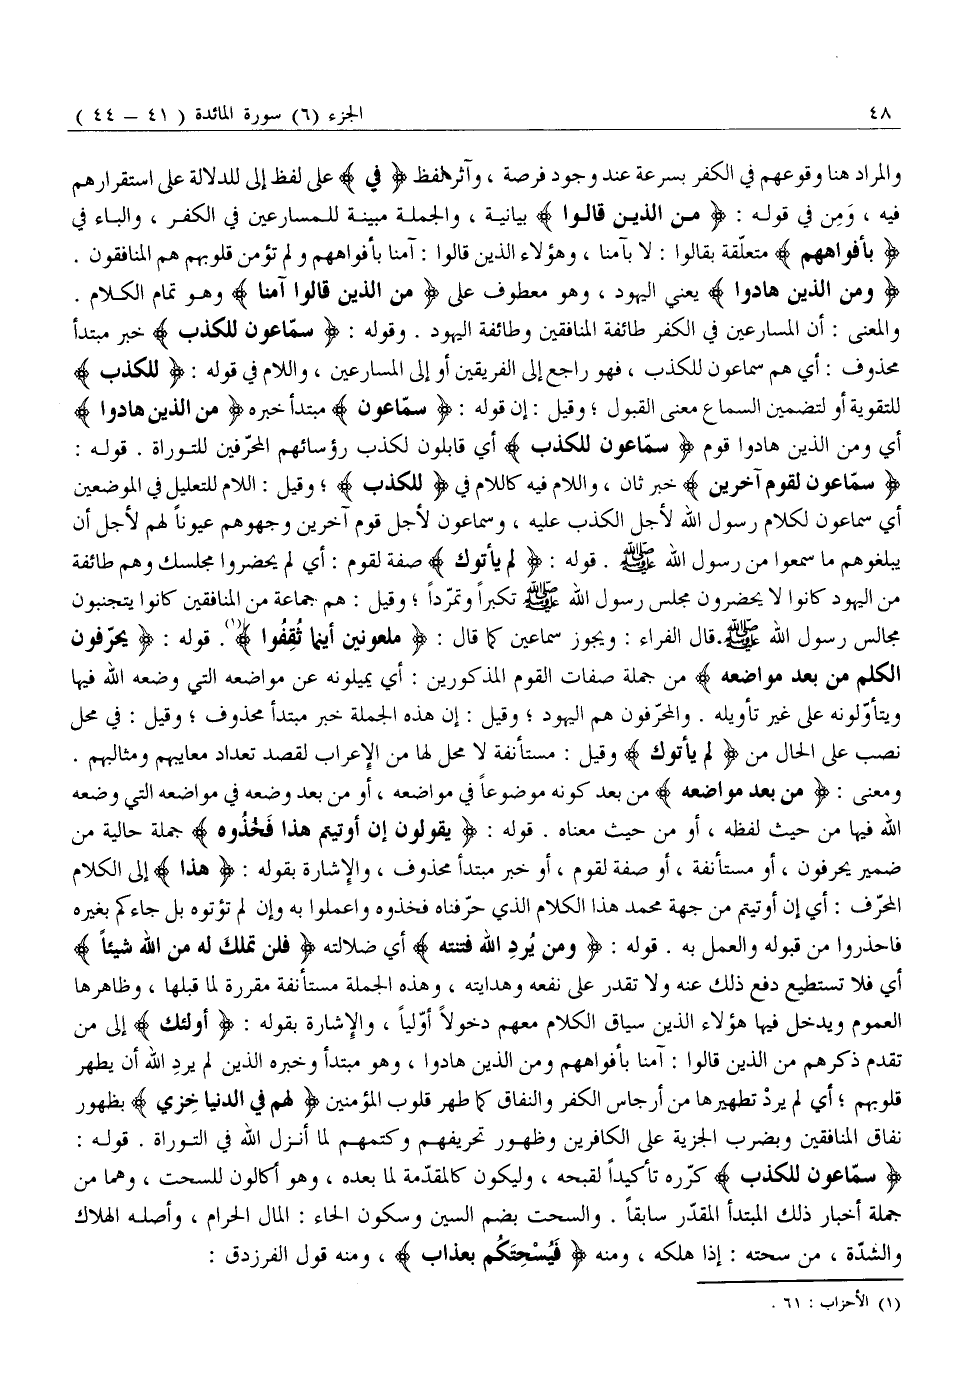 ٤٨ الجزء (٦) سورة المائدة ( ٤١ – ٤٤ )
والمراد هنا وقوعهم في الكفر بسرعة عند وجود فرصة ، وآثر لفظ ﴿ في ﴾ على لفظ إلى للدلالة على استقرارهم
فيه ، وَمِن في قوله : ﴿ من الذين قالوا ﴾ بيانية ، والجملة مبينة للمسارعين في الكفر ، والباء في
﴿ بأفواههم ﴾ متعلّقة بقالوا : لا بآمنا ، وهؤلاء الذين قالوا : آمنا بأفواههم و لم تؤمن قلوبهم هم المنافقون .
﴿ ومن الذين هادوا ﴾ يعني اليهود ، وهو معطوف على ﴿ من الذين قالوا آمنا ﴾ وهو تمام الكلام .
والمعنى : أن المسارعين في الكفر طائفة المنافقين وطائفة اليهود . وقوله : ﴿ سمّاعون للكذب ﴾ خبر مبتدأ
محذوف : أي هم سماعون للكذب ، فهو راجع إلى الفريقين أو إلى المسارعين ، واللام في قوله : ﴿ للكذب ﴾
للتقوية أو لتضمين السماع معنى القبول ؛ وقيل : إن قوله : ﴿ سمّاعون ﴾ مبتدأ خبره ﴿ من الذين هادوا ﴾
أي ومن الذين هادوا قوم ﴿ سمّاعون للكذب ﴾ أي قابلون لكذب رؤسائهم المحرّفين للتوراة . قوله :
﴿ سمّاعون لقوم آخرين ﴾ خبر ثان ، واللام فيه كاللام في ﴿ للكذب ﴾ ؛ وقيل : اللام للتعليل في الموضعين
أي سماعون لكلام رسول الله لأجل الكذب عليه ، وسماعون لأجل قوم آخرين وجهوهم عيوناً لهم لأجل أن
يبلغوهم ما سمعوا من رسول الله ﷺ . قوله : ﴿ لم يأتوك ﴾ صفة لقوم : أي لم يحضروا مجلسك وهم طائفة
من اليهود كانوا لا يحضرون مجلس رسول الله ﷺ تكبراً وتمرّداً ؛ وقيل : هم جماعة من المنافقين كانوا يتجنبون
مجالس رسول الله ﷺ.قال الفراء : ويجوز سماعين كما قال : ﴿ ملعونين أينما ثُقِفُوا ﴾(١). قوله : ﴿ يحرّفون
الكلم من بعد مواضعه ﴾ من جملة صفات القوم المذكورين : أي يميلونه عن مواضعه التي وضعه الله فيها
ويتأوّلونه على غير تأويله . والمحرّفون هم اليهود ؛ وقيل : إن هذه الجملة خبر مبتدأ محذوف ؛ وقيل : في محل
نصب على الحال من ﴿ لم يأتوك ﴾ وقيل : مستأنفة لا محل لها من الإعراب لقصد تعداد معايبهم ومثالبهم .
ومعنى : ﴿ من بعد مواضعه ﴾ من بعد كونه موضوعاً في مواضعه ، أو من بعد وضعه في مواضعه التي وضعه
الله فيها من حيث لفظه ، أو من حيث معناه . قوله : ﴿ يقولون إن أوتيتم هذا فَخُذُوه ﴾ جملة حالية من
ضمير يحرفون ، أو مستأنفة ، أو صفة لقوم ، أو خبر مبتدأ محذوف ، والإشارة بقوله : ﴿ هذا ﴾ إلى الكلام
المحرّف : أي إن أوتيتم من جهة محمد هذا الكلام الذي حرّفناه فخذوه واعملوا به وإن لم تؤتوه بل جاءكم بغيره
فاحذروا من قبوله والعمل به . قوله : ﴿ ومن يُردِ الله فتنته ﴾ أي ضلالته ﴿ فلن تملك له من الله شيئاً ﴾
أي فلا تستطيع دفع ذلك عنه ولا تقدر على نفعه وهدايته ، وهذه الجملة مستأنفة مقررة لما قبلها ، وظاهرها
العموم ويدخل فيها هؤلاء الذين سياق الكلام معهم دخولاً أوّلياً ، والإشارة بقوله : ﴿ أولئك ﴾ إلى من
تقدم ذكرهم من الذين قالوا : آمنا بأفواههم ومن الذين هادوا ، وهو مبتدأ وخبره الذين لم يردِ الله أن يطهر
قلوبهم ؛ أي لم يردْ تطهيرها من أرجاس الكفر والنفاق كما طهر قلوب المؤمنين ﴿ لهم في الدنيا خِزي ﴾ بظهور
نفاق المنافقين وبضرب الجزية على الكافرين وظهور تحريفهم وكتمهم لما أنزل الله في التوراة . قوله :
﴿ سمّاعون للكذب ﴾ كرّره تأكيداً لقبحه ، وليكون كالمقدّمة لما بعده ، وهو أكالون للسحت ، وهما من
جملة أخبار ذلك المبتدأ المقدّر سابقاً . والسحت بضم السين وسكون الحاء : المال الحرام ، وأصله الهلاك
والشدّة ، من سحته : إذا هلكه ، ومنه ﴿ فَيُسْحِتَكُم بعذاب ﴾ ، ومنه قول الفرزدق :
(١) الأحزاب : ٦١ .